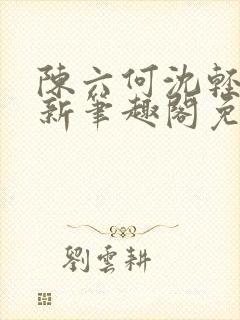 陳六何沈輕
新筆趣閣免
劉雲耕